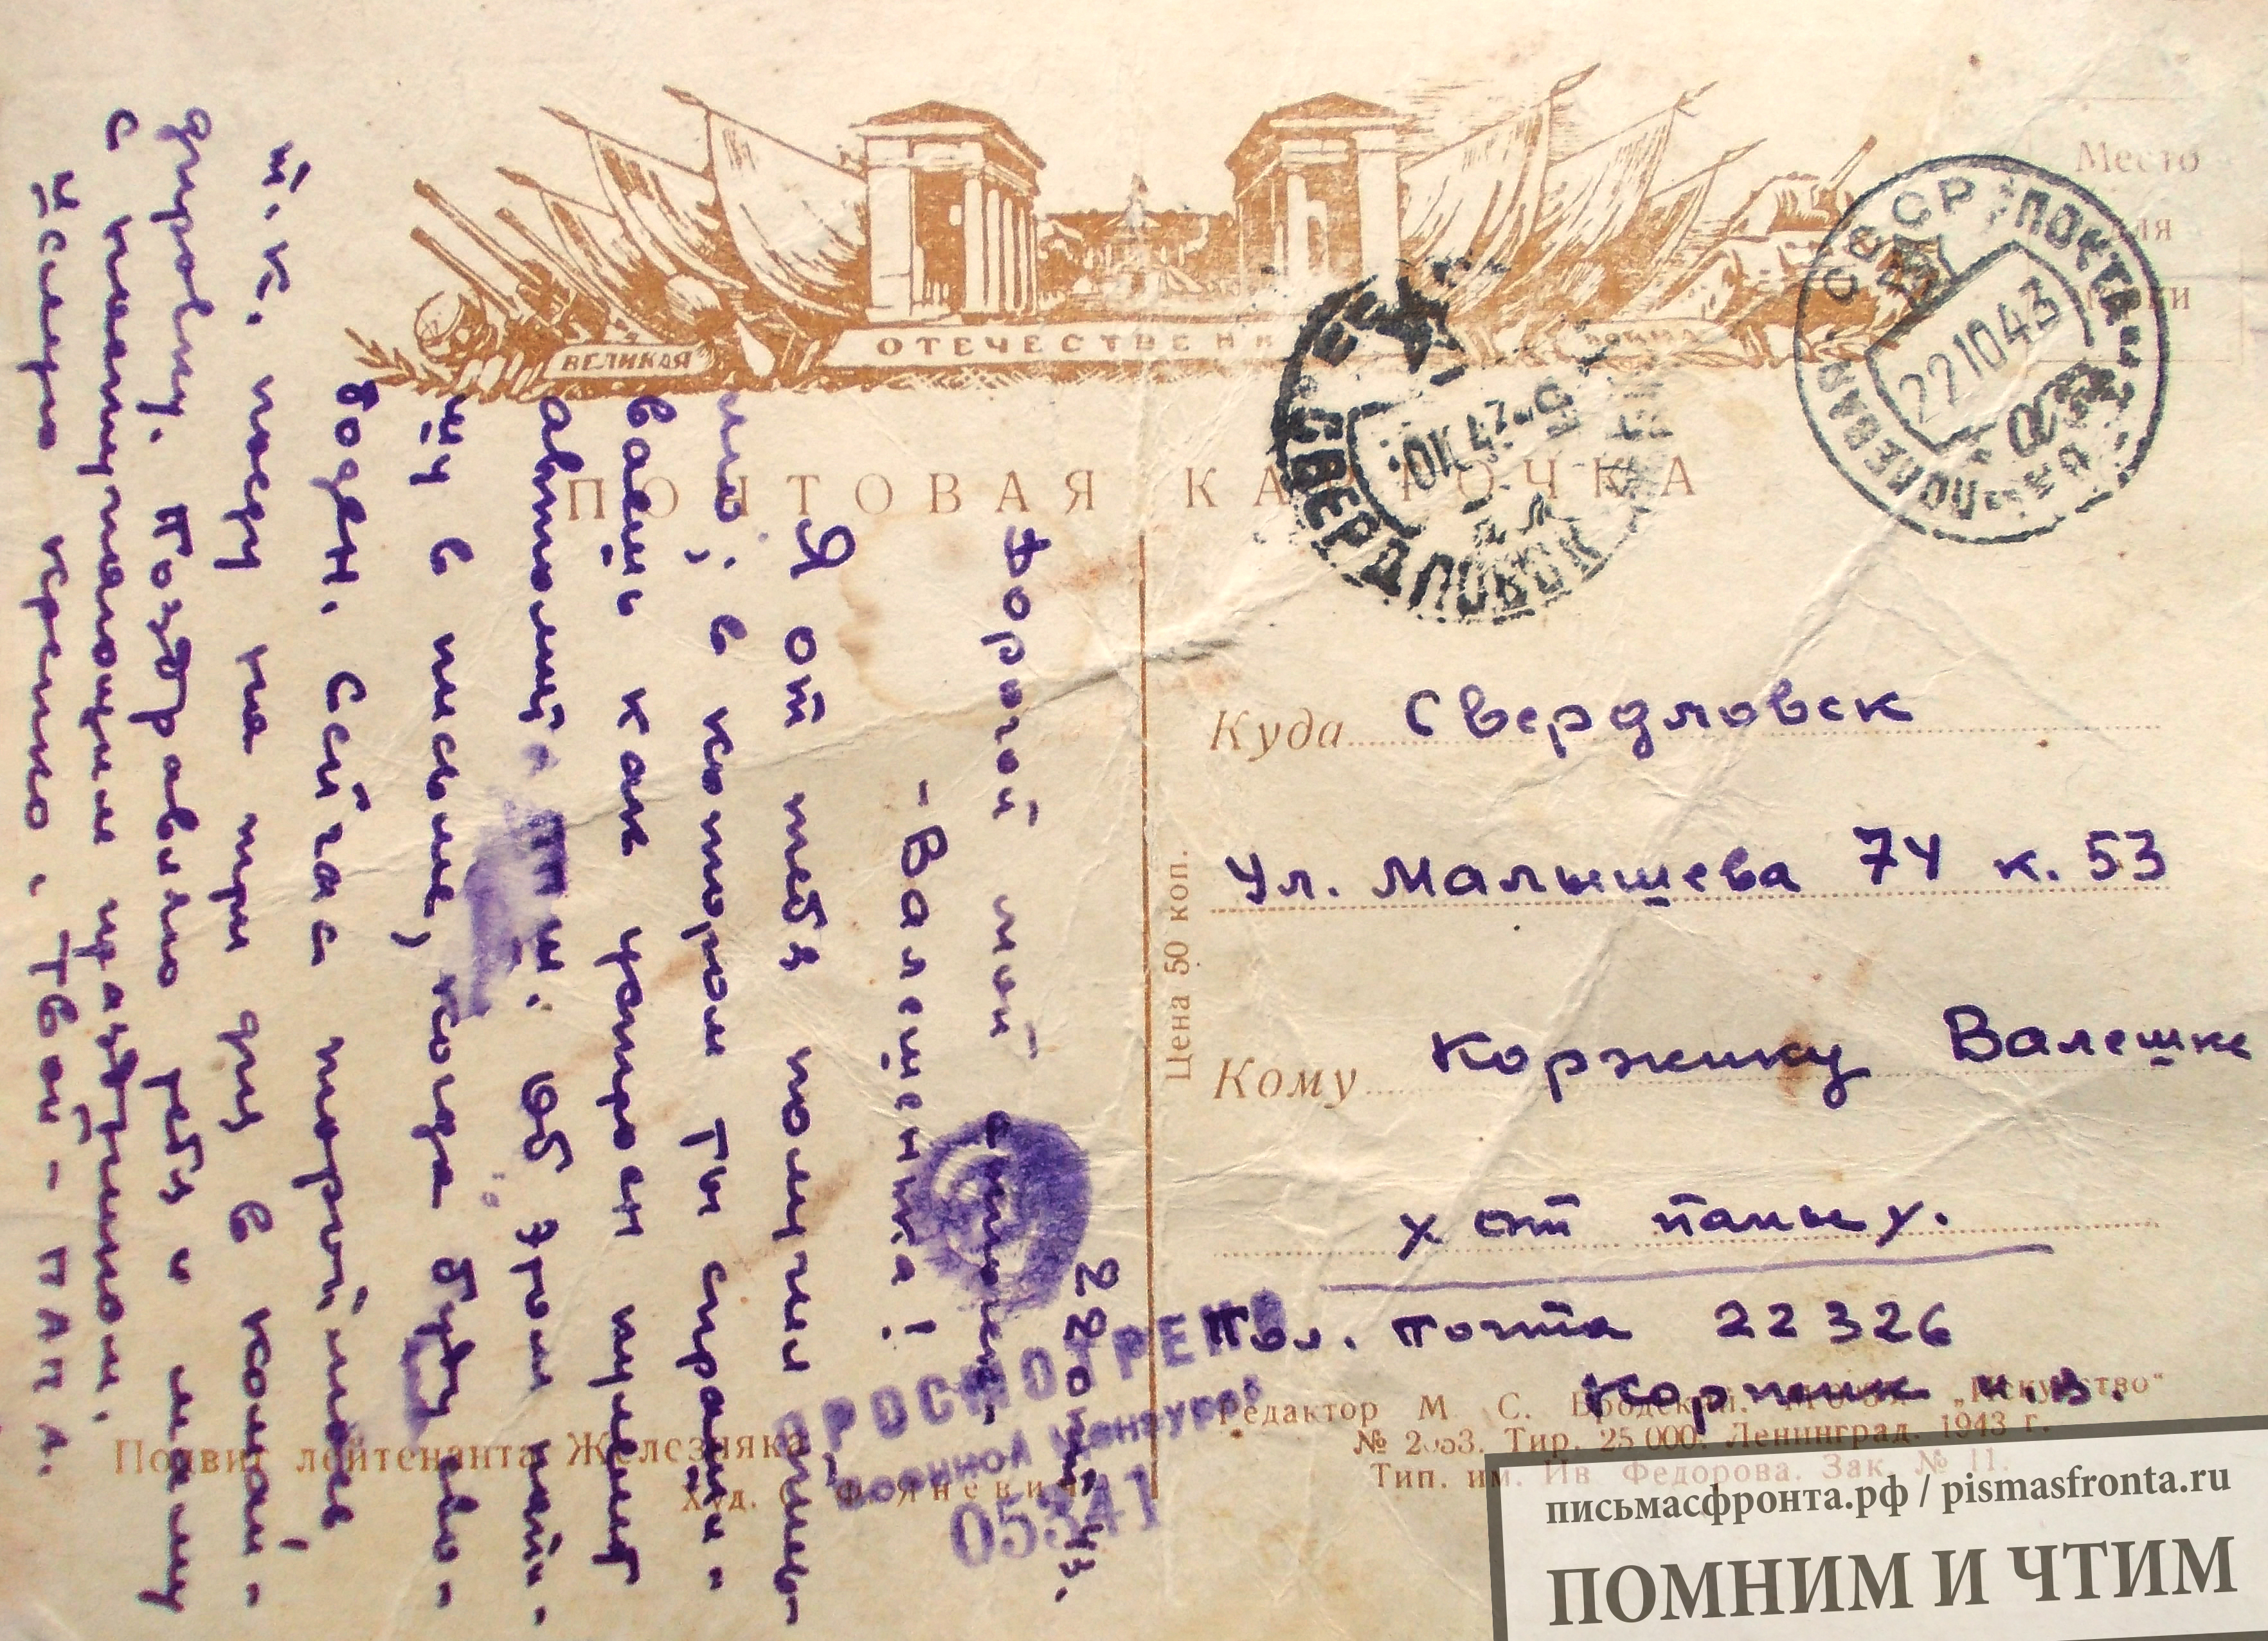 ВЕЛИКАЯ ОТЕЧЕСТВЕННАЯ ВОЙНА
ПОЧТОВАЯ КАРТОЧКА
Место
для
марки
СССР "ПОЛЕВАЯ ПОЧТА"
22 10 43
СВЕРДЛОВСК
Куда Свердловск
Ул. Малышева 74 к. 53
Кому Коржику Валешке
от папы
Пол. почта 22326
Коржик
Цена 50 коп.
22 43.
Дорогой мой
-Валещенка!
Я от тебя получил письм-
мо, в котором ты спраши-
ваешь как устроен пулемёт
автомат. Об этом напи-
шу в письме, когда буду сво-
боден. Сейчас тороплюсь
т. к. еду на три дня в коман-
дировку. Поздравляю тебя и маму
с наступающим праздником.
Целую крепко, твой - ПАПА.
ПРОСМОТРЕНО
Военной Цензурой
05341
Подвиг лейтенанта Железняка
Худ.
Редактор М. С. Бродский. "Искусство"
Тир. 25 000. Ленинград. 1943 г.
Тип. им. Ив Федорова. Зак. № 11.
письмасфронта.рф / pismasfronta.ru
ПОМНИМ И ЧТИМ